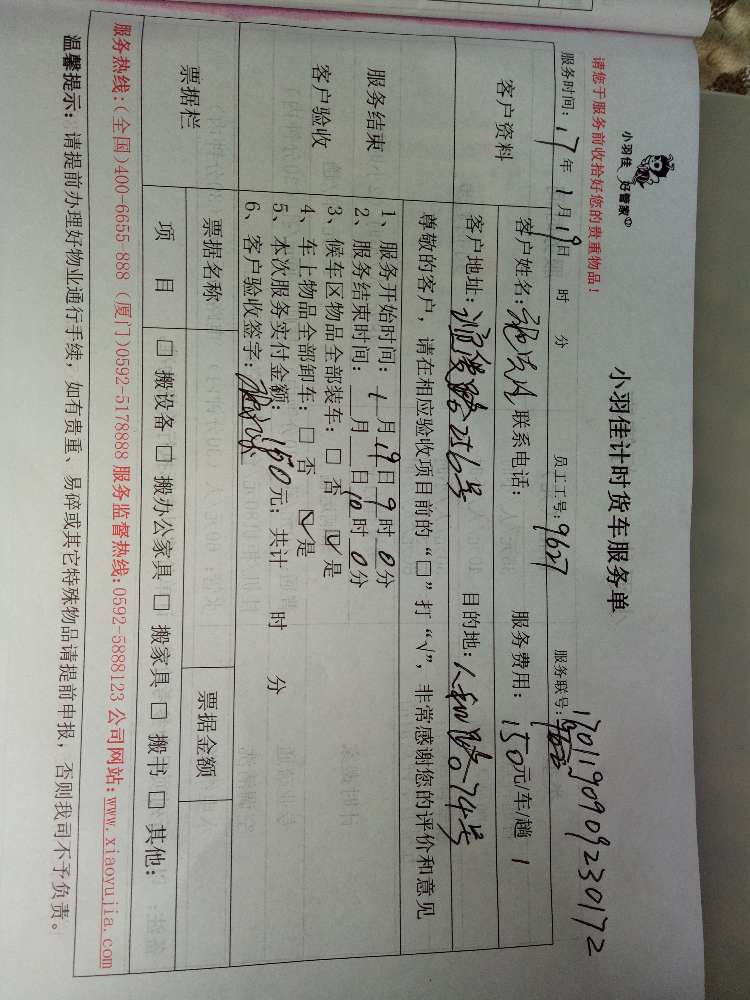 小羽佳 好管家
小羽佳计时货车服务单
170119090923017 2
请您于服务前收拾好您的贵重物品！
服务时间：17年1月19日 时 分 员工工号：9627 服务联号：
客户资料
客户姓名： 联系电话： 服务费用：150元/车/趟 1
客户地址：256号 目的地：人和路74号
服务结束
客户验收
尊敬的客户，请在相应验收项目前的“□”打“√”，非常感谢您的评价和意见
1、服务开始时间：1月19日9时0分
2、服务结束时间：__月__日10时0分
3、候车区物品全部装车：□ 否 ☑ 是
4、车上物品全部卸车：□ 否 ☑ 是
5、本次服务实付金额：150元；共计 时 分
6、客户验收签字：
票据栏
票据名称 票据金额
项 目 □ 搬设备 □ 搬办公家具 □ 搬家具 □ 搬书 □ 其他：
服务热线：(全国)400-6655-888 (厦门)0592-5178888 服务监督热线：0592-5888123 公司网站：www.xiaoyujia.com
温馨提示：请提前办理好物业通行手续，如有贵重、易碎或其它特殊物品请提前申报，否则我司不予负责。